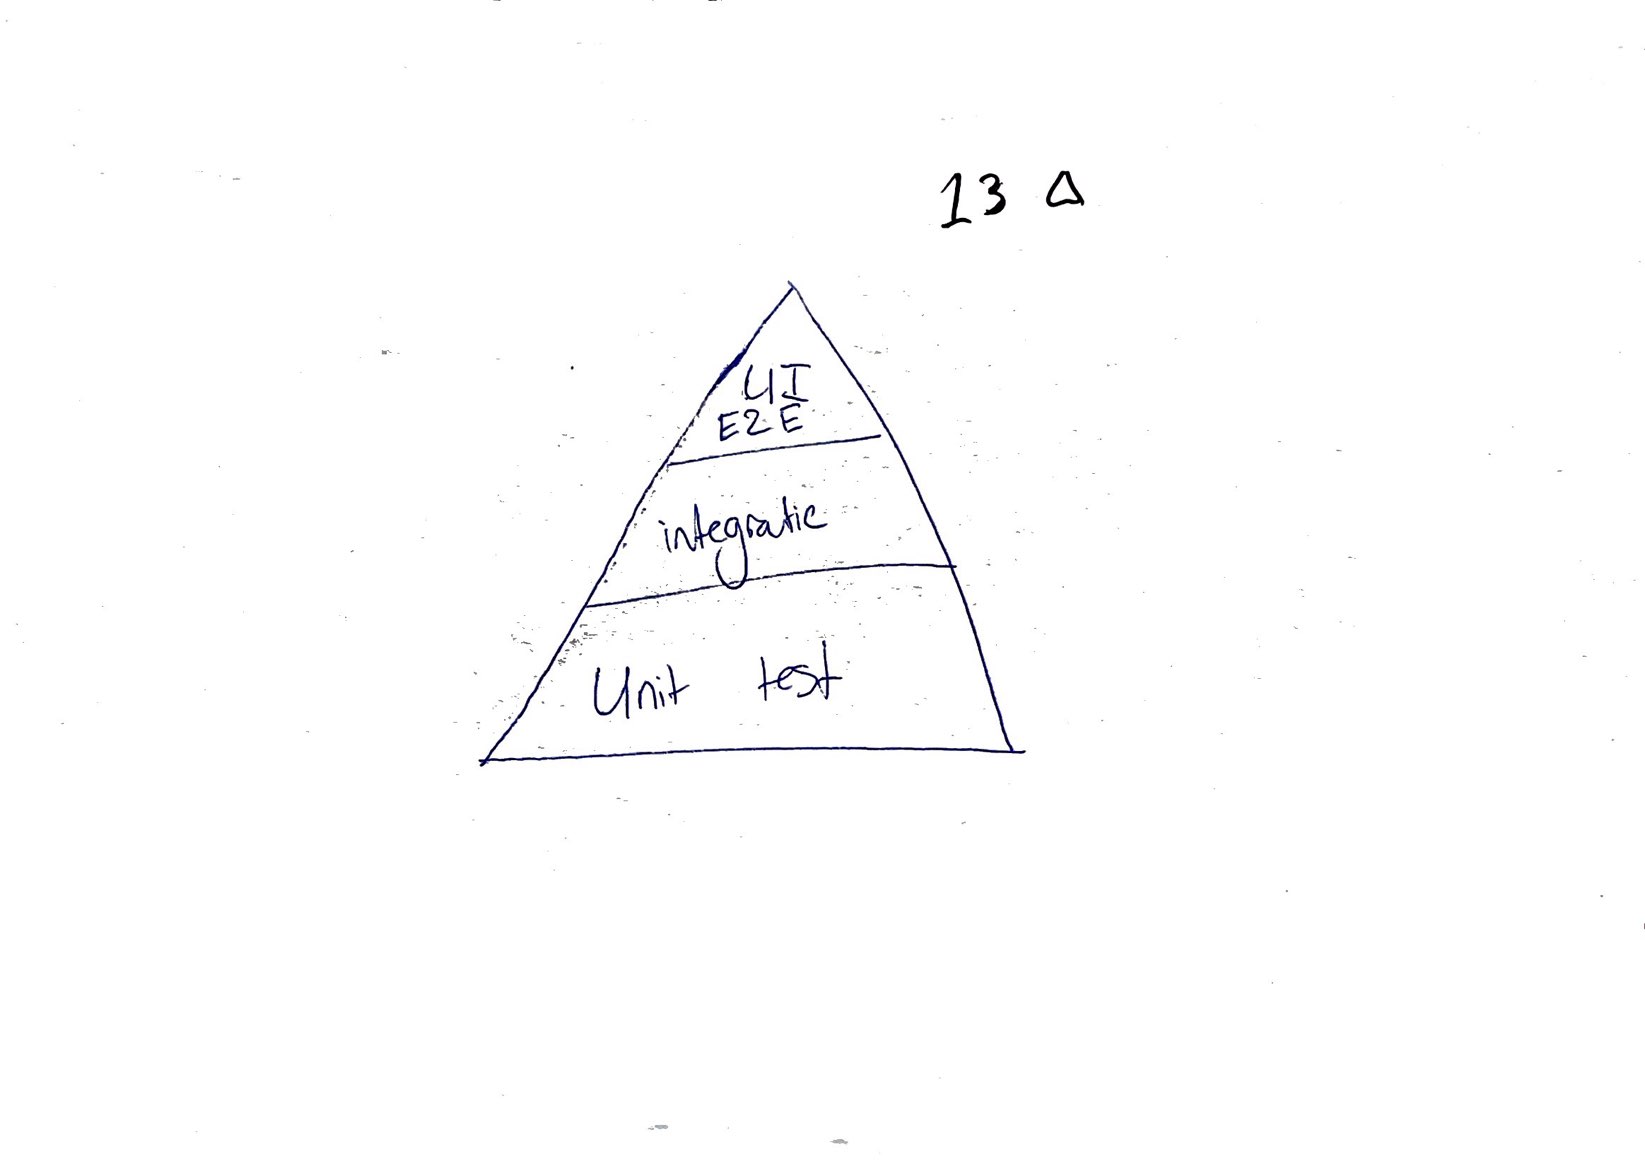 13 Δ
UI
E2E
integratie
Unit test